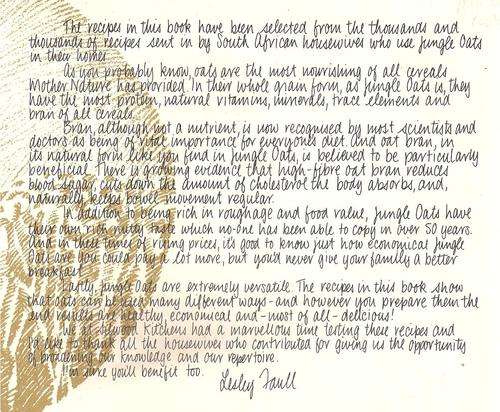 The recipes in this book have been selected from the thousands and
thousands of recipes sent in by South African housewives who use Jungle Oats
in their homes.
As you probably know, oats are the most nourishing of all cereals
Mother Nature has provided. In their whole grain form, as Jungle Oats is, they
have the most protein, natural vitamins, minerals, trace elements and
bran of all cereals.
Bran, although not a nutrient, is now recognised by most scientists and
doctors as being of vital importance for everyone's diet. and oat bran, in
its natural form like you find in Jungle Oats, is believed to be particularly
beneficial. There is growing evidence that high-fibre oat bran reduces
blood sugar, cuts down the amount of cholesterol the body absorbs, and,
naturally, keeps bowel movement regular.
In addition to being rich in roughage and food value, Jungle Oats have
their own rich nutty taste which no-one has been able to copy in over 50 years.
And in these times of rising prices, it's good to know just how economical Jungle
Oats are. You could pay a lot more, but you'd never give your family a better
breakfast.
Lastly, Jungle Oats are extremely versatile. The recipes in this book show
that oats can be used many different ways - and however you prepare them the
end results are healthy, economical and - most of all - delicious!
We at Silwood Kitchens had a marvellous time testing these recipes and
I'd like to thank all the housewives who contributed for giving us the opportunity
of broadening our knowledge and our repertoire.
I'm sure you'll benefit too.
Lesley Faull